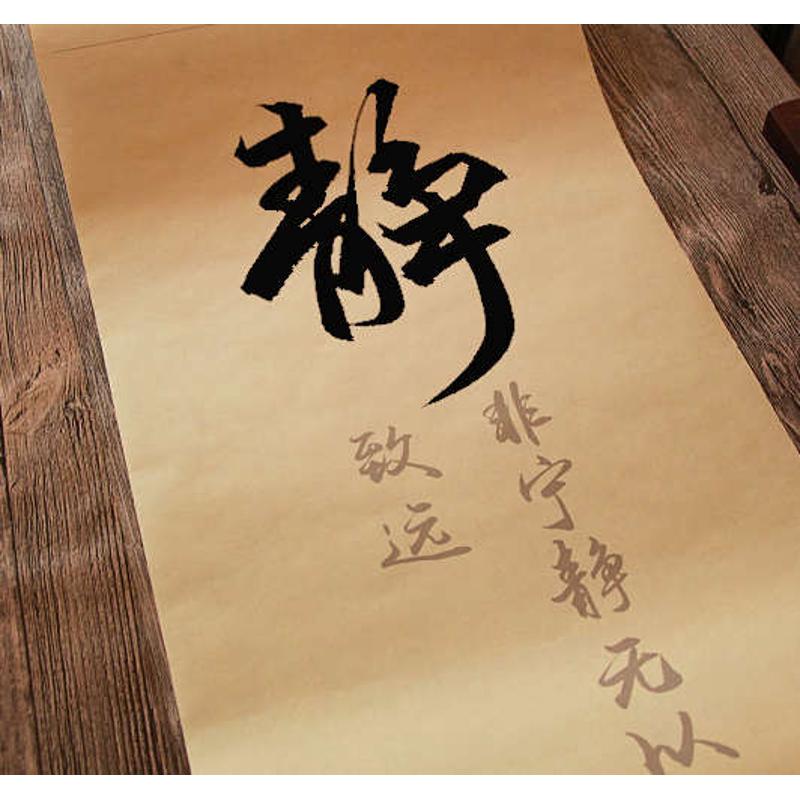 静
非宁静无以
致远